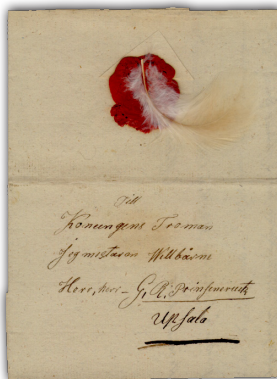 Till
Konungens Troman
Jegmestaren Wellbårne
Herr, herr – G. R. Prinsencreutz
Upsala